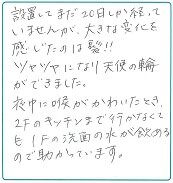 設置してまだ20日しか経って
いませんが、大きな変化を
感じたのは髪!!
ツヤツヤになり天使の輪
ができました。
夜中に喉がかわいたとき、
2Fのキッチンまで行かなくて
も1Fの洗面の水が飲める
ので助かっています。